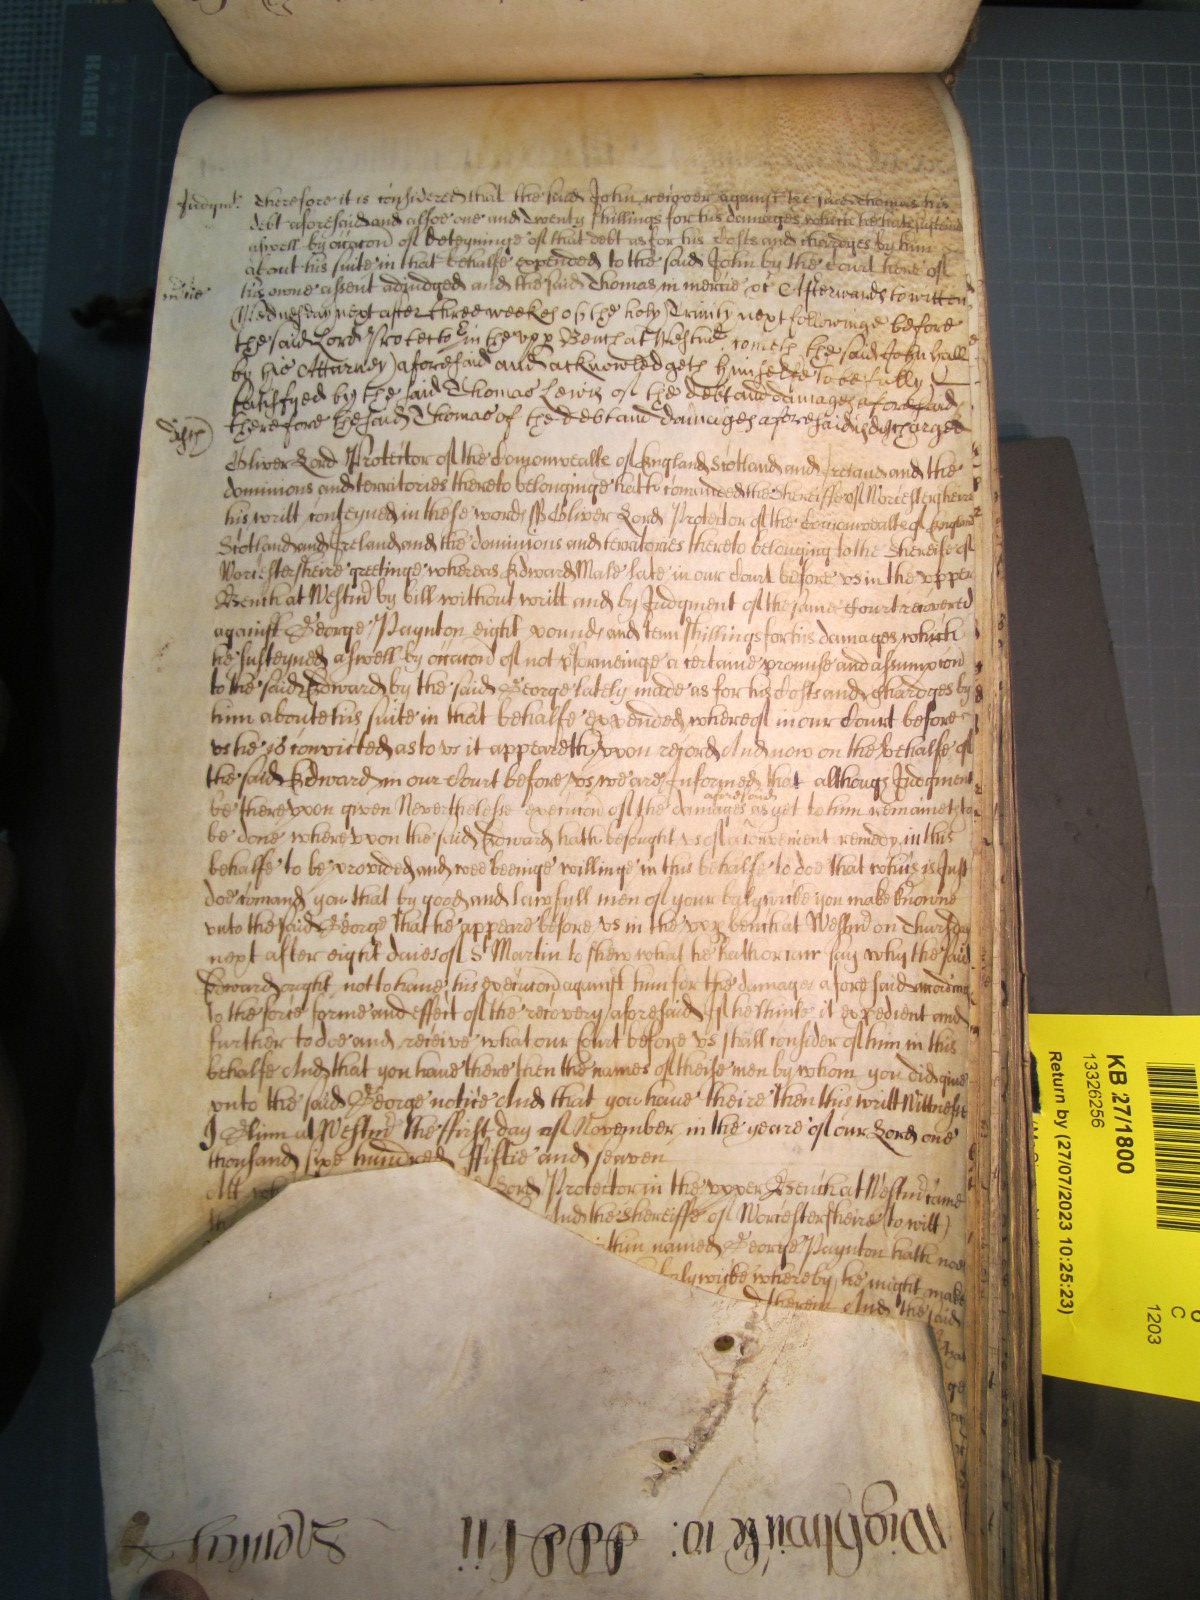 Judgmt. Therefore it is considered that the said John recover against the said Thomas his
debt aforesaid and alsoe one and twenty shillings for his damages which he hath susteined
aswell by occacon of deteyninge of that debt as for his Costs and chardges by him
about his suite in that behalfe expended to the said John by the Court here of
mcie his owne assent adjudged and the said Thomas in mercie &c Afterwards to witt on
Wednesday next after three weekes of the holy Trinity next followinge before
the said Lord Protector in the upp Bench at Westmr cometh the said John Hall
by his Attorney aforesaid and acknowledgeth himselfe to be fully
satisfyed by the said Thomas Lewis of the debt and damages aforesaid
therefore the said Thomas of the debt and damages aforesaid is dischargd
Oliver Lord Protector of the Comonwealte of England Scotland and Ireland and the
dominions and territories thereto belonginge hath comanded the Sheriffe of Worcestersheire
his writt conteyned in these words ss Oliver Lord Protector of the Comonwealte of England
Scotland and Ireland and the dominions and territories thereto belonging to the Shereife of
Worcestersheire greetinge whereas Edward Male late in our Court before us in the upper
Bench at Westmr by bill without writt and by Judgment of the same Court recovered
against George Paynton eight pounds and tenn shillings for his damages which
he susteyned aswell by occacon of not pformeinge a certaine promise and assumpcon
to the said Edward by the said George lately made as for his Costs and chardges by
him aboute his suite in that behalfe expended whereof in our Court before
us he is convicted as to us it appeareth upon record And now on the behalfe of
the said Edward in our Court before us we are Informed that although Judgment
be thereupon given Neverthelesse execucon of the damages aforesaid as yet to him remaineth to
be done whereupon the said Edward hath besought us of a convenient remedy in this
behalfe to be provided and wee beeinge willinge in this behalfe to doe that which is Just
doe comand you that by good and lawfull men of your balywicke you make knowne
unto the said George that he appeare before us in the upp bench at Westmr on Thursday
next after eight daies of St Martin to shew what he hath or can say why the said
Edward ought not to have his execucon against him for the damages aforesaid according
to the force forme and effect of the recovery aforesaid If he thinke it expedient and
further to doe and receive what our Court before us shall consider of him in this
behalfe And that you have there then the names of theise men by whom you did give
unto the said George notice And that you have theire then this writt Wittnesse
J Glinn at Westmr the first day of November in the yeare of our Lord one
thousand sixe hundred ffiftie and seaven
Att Lord Protector in the upper Bench at Westmr came
And the Sheriffe of Worcestersheire (to witt)
him named George Paynton hath not
balywicke whereby he might make
therein And the said
Wightwicke
KAISER
KB 27/1800
13326256
Return by (27/07/2023 10:25:23)
C
1203